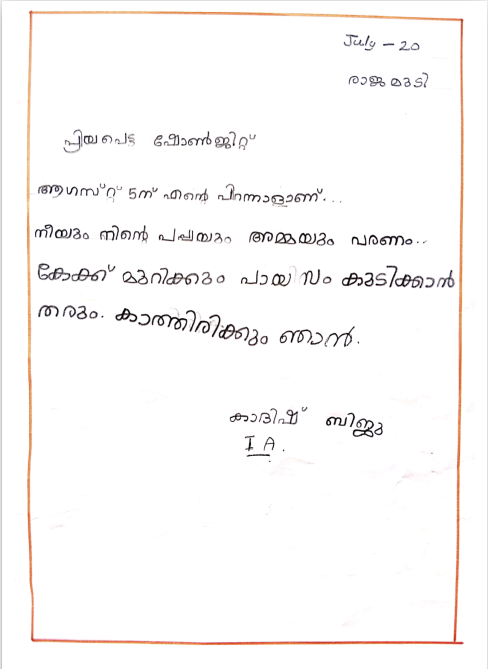 July - 20
രാജമുടി
പ്രിയപെട്ട ഷോൺജിറ്റ്
ആഗസ്റ്റ് 5ന് എന്റെ പിറന്നാളാണ്...
നീയും നിന്റെ പപ്പയും അമ്മയും വരണം..
കേക്ക് മുറിക്കും പായസം കുടിക്കാൻ
തരും. കാത്തിരിക്കും ഞാൻ.
കാദിഷ് ബിജു
I A.